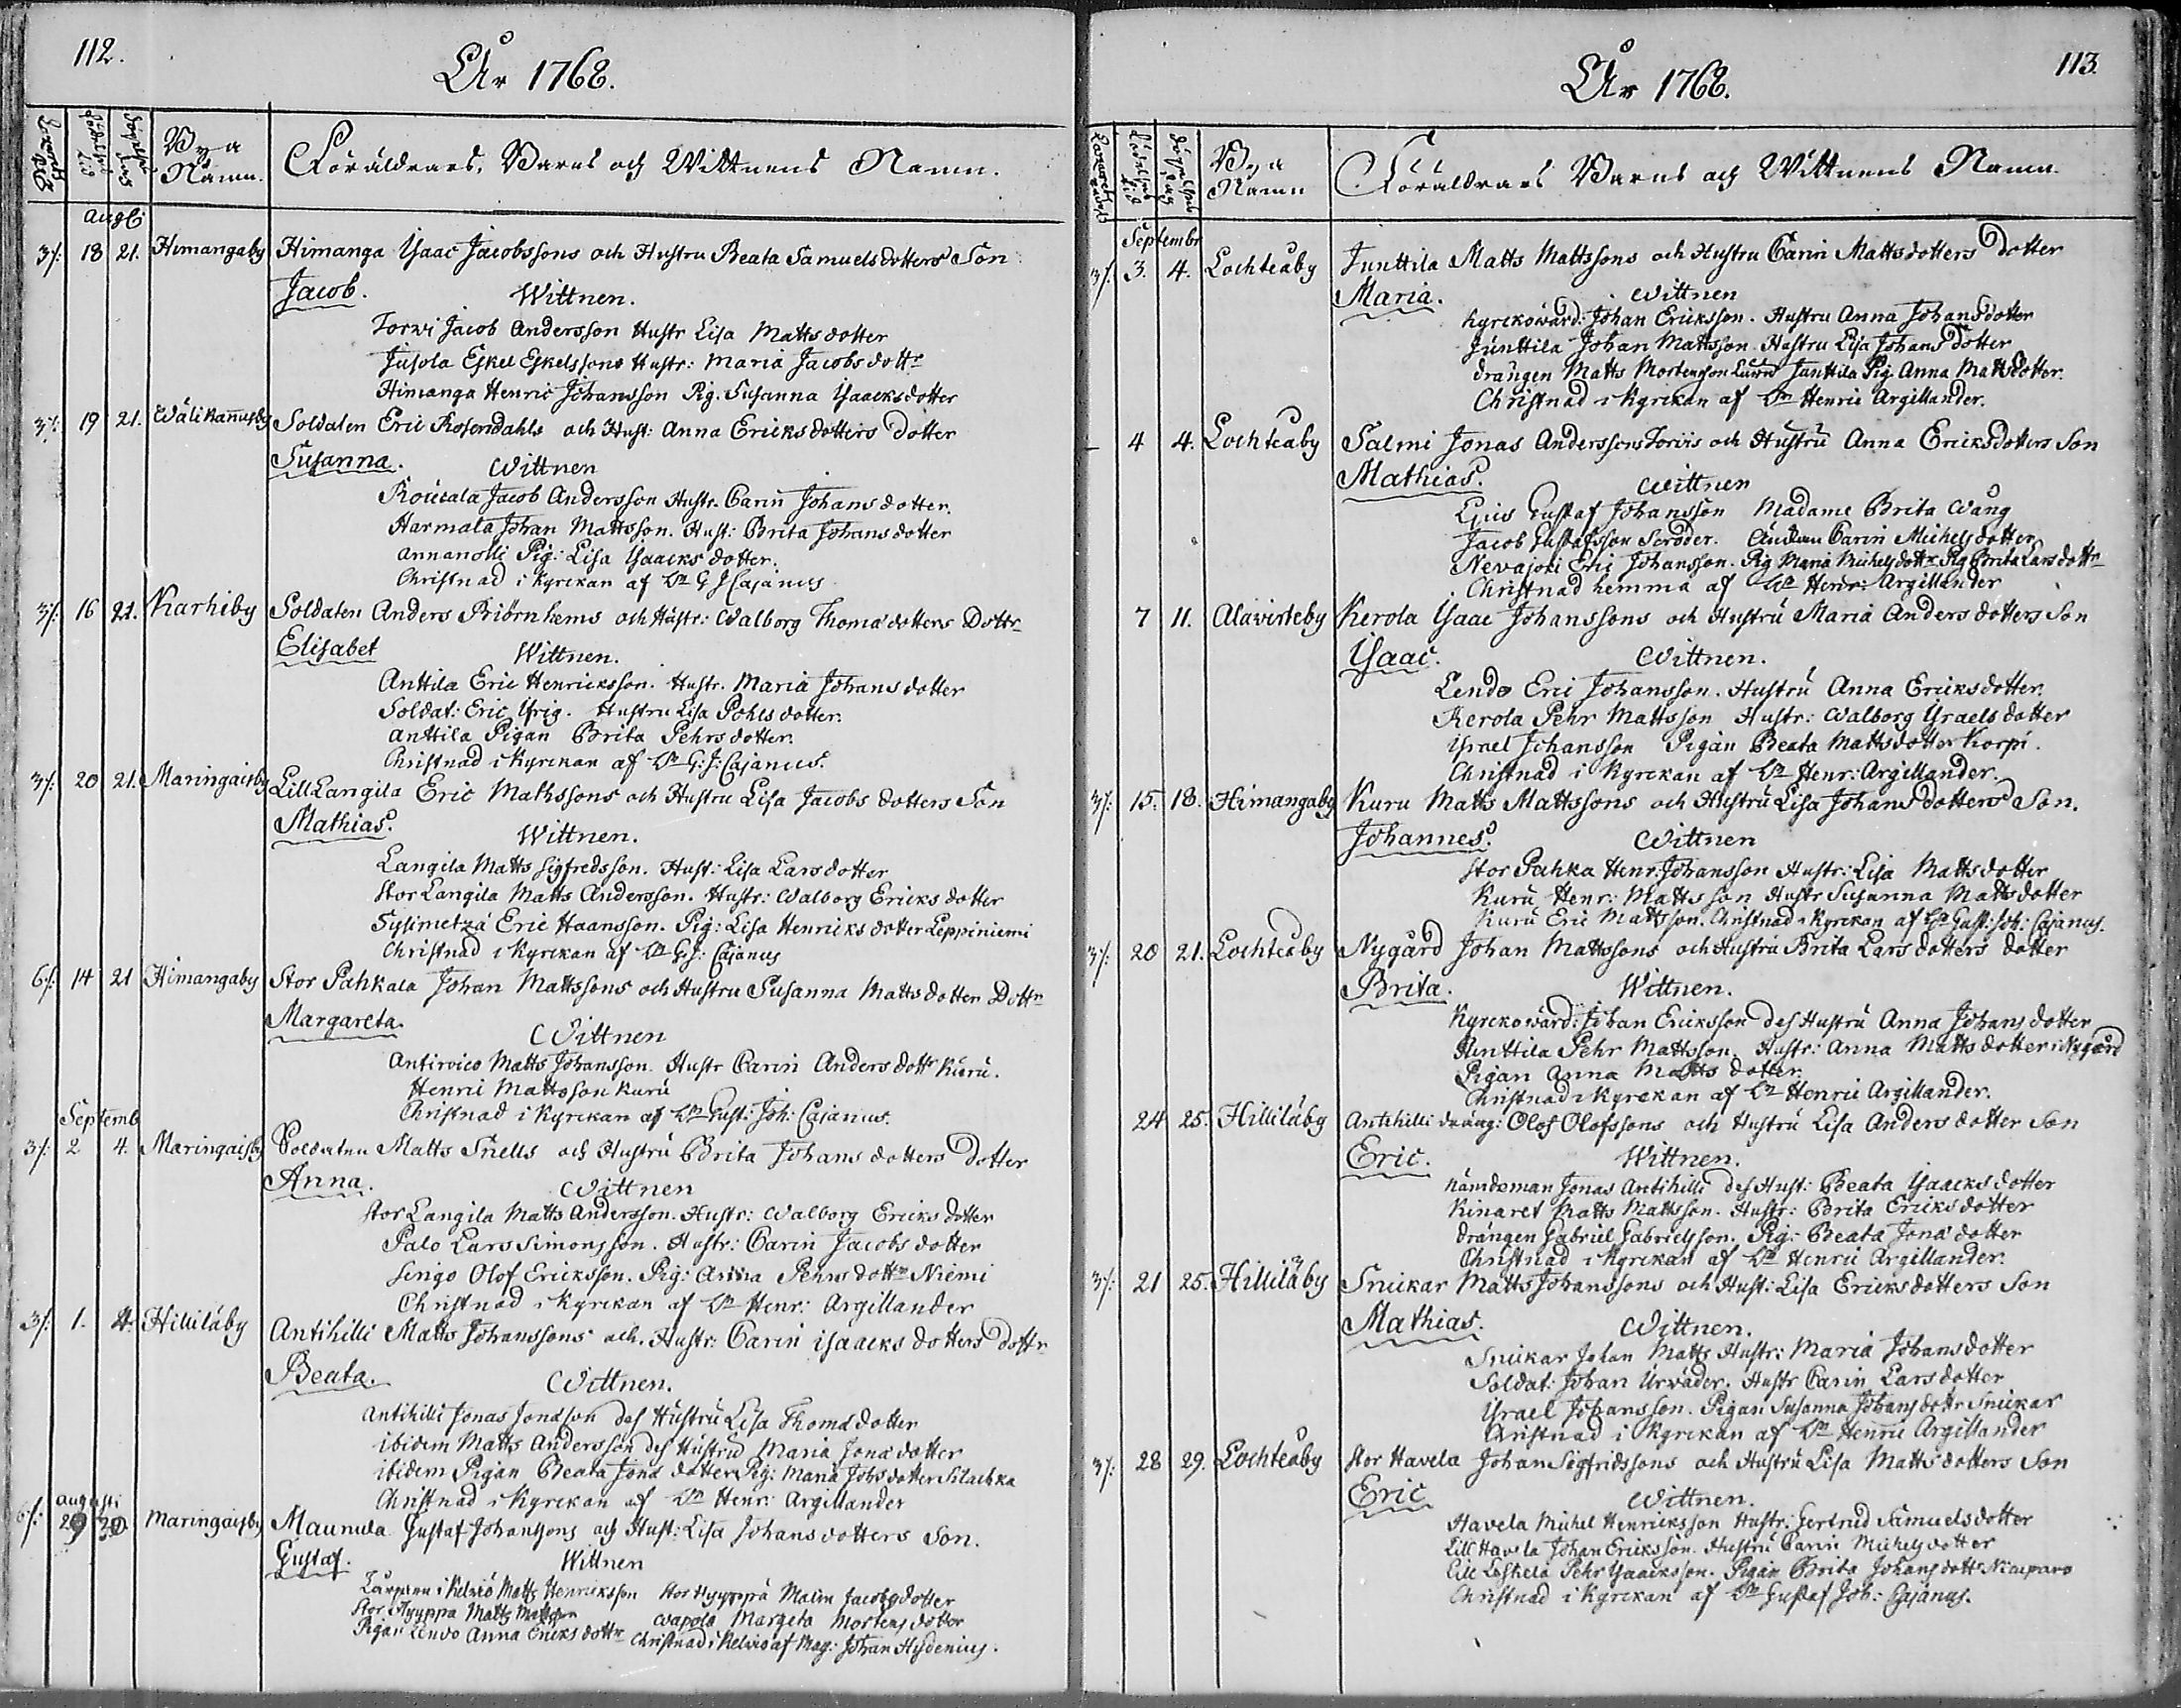 112.
År 1768.
Bya Namn.
Föräldrars, Barns och Wittnens Namn.
Augti
3/: 18 21. Himangaby Himanga Ysaac Jacobssons och Hustru Beata Samuelsdotters Son
Jacob. Wittnen.
Torwi Jacob Andersson Hustr Lisa Mattsdotter
Jusola Eskel Eskelssons Hustr: Maria Jacobs dottr
Himanga Henric Johansson Pig. Susanna Ysaacksdotter
3/: 19 21. Wälikannusby Soldaten Eric Rosendahls och Hust: Anna Ericksdotters dotter
Susanna. Wittnen
Roucala Jacob Andersson Hustr. Carin Johansdotter.
Harmala Johan Mattsson. Hust: Brita Johansdotter
Annanolli Pig: Lisa Ysaacksdotter.
Christnad i Kyrckan af Hr G J Cajanus
3/: 16 21. Karhiby Soldaten Anders Biörnhems och Hustr: Walborg Thomadotters Dottr
Elisabet Wittnen.
Anttila Eric Henricksson. Hustr. Maria Johansdotter
Soldat: Eric Yrig. Hustru Lisa Pohlsdotter.
Anttila Pigan Brita Pehrsdotter.
Christnad i Kyrckan af Hr G: J: Cajanus.
3/: 20 21. Maringaisby Lill Langila Eric Mathssons och Hustru Lisa Jacobs dotters Son
Mathias. Wittnen.
Langila Matts Sigfredsson. Hust: Lisa Larsdotter
Stor Langila Matts Andersson. Hustr: Walborg Ericksdotter
Sysimetzä Eric Haansson. Pig: Lisa Henricksdotter Leppiniemi
Christnad i Kyrckan af Hr G J: Cajanus
6/: 14 21 Himangaby Stor Pahkala Johan Mattssons och Hustru Susanna Mattsdotters Dottr
Margareta. Wittnen
Antiroico Matts Johansson. Hustr Carin Anders dottr Kuru.
Henric Mattsson Kuru
Christnad i Kyrckan af Hr Gust: Joh: Cajanus.
Septemb
3/: 2 4. Maringaisby Soldaten Matts Snells och Hustru Brita Johans dotters Dotter
Anna. Wittnen
Stor Langila Matts Andersson. Hustr: Walborg Ericksdotter
Palo Lars Simonsson. Hustr: Carin Jacobsdotter
Singo Olof Ericksson. Pig: Anna Pehrsdottr Niemi
Christnad i Kyrckan af Hr Henr: Argillander
3/: 1. 4. Hilliläby Antihilli Matts Johanssons och Hustr: Carin Isaacks dotters Dottr
Beata. Wittnen.
Antihilli Jonas Jonasson des Hustru Lisa Thomadotter
ibidem Matts Andersson des Hustru Maria Jonadotter
ibidem Pigan Beata Jona dotter Pig: Maria Johsdotter Silachka
Christnad i Kyrckan af Hr Henr: Argillander
Augusti
6/: 29 30 Maringaisby Maunula Gustaf Johanssons och Hust: Lisa Johansdotters Son.
Gustaf. Wittnen
i Kelviå Matts Henricksson Stor Hyyppä Malin Jacobsdotter
Stor Hyyppä Matts Mattsson Wapola Margeta Mortensdotter
Pigan Lendo Anna Ericksdottr Christnad i Kelviå af Mag: Johan Hydenius.
År 1768.
113.
Bya Namn
Föräldrars Barns och Wittnens Namn.
Septembr
3/: 3. 4. Lochteåby Junttila Matts Mattssons och Hustru Carin Mattsdotters Dotter
Maria. Wittnen
Kyrckowärd: Johan Ericksson. Hustru Anna Johansdotter
Junttila Johan Mattsson. Hustru Lisa Johansdotter
drängen Matts Mortensson Junttila Pig. Anna Mattsdotter.
Christnad i Kyrckan af Hr Henric Argillander.
– 4 4. Lochteåby Salmi Jonas Anderssons Torvis och Hustru Anna Ericksdotters Son
Mathias. Wittnen
Gustaf Johansson Madame Brita Wang
Jacob Gustafsson Scroder. Änckan Carin Michelsdotter
Nevajoki Eric Johansson. Pig Maria Michelsdottr Pig Brita Larsdottr
Christnad hemma af Hr Henr: Argillander
7 11. Alavirteby Kerola Ysaac Johanssons och Hustru Maria Anders dotters Son
Ysaac. Wittnen.
Lendo Eric Johansson. Hustru Anna Ericksdotter.
Kerola Pehr Mattsson Hustr: Walborg Ysraelsdotter
Ysrael Johansson Pigan Beata Mattsdotter Korpi.
Christnad i Kyrckan af Hr Henr: Argillander.
3/: 15. 18. Himangaby Kuru Matts Mattssons och Hustru Lisa Johansdotters Son.
Johannes. Wittnen
Stor Pahka Henr. Johansson Hustr: Lisa Mattsdotter
Kuru Henr: Mattsson Hustr Susanna Mattsdotter
Kuru Eric Mattsson. Christnad i Kyrckan af Hr Gust: Joh: Cajanus.
3/: 20 21. Lochteåby Nygård Johan Mattssons och Hustru Brita Larsdotters dotter
Brita. Wittnen.
Kyrckowärd: Johan Ericksson des Hustru Anna Johansdotter
Junttila Pehr Mattsson. Hustr: Anna Mattsdotter i Nygård
Pigan Anna Matts dotter.
Christnad i Kyrckan af Hr Henric Argillander.
24 25. Hilliläby Antihilli dräng: Olof Olofssons och Hustru Lisa Andersdotter Son
Eric. Wittnen.
Nämdeman Jonas Antihilli des Hust: Beata Ysaacksdotter
Kinaret Matts Mattsson. Hustr: Brita Ericksdotter
drängen Gabriel Gabrielsson. Pig: Beata Jonadotter
Christnad i Kyrckan af Hr Henric Argillander.
3/: 21 25. Hilliläby Snickar Matts Johanssons och Hust: Lisa Ericksdotters Son
Mathias. Wittnen.
Snickar Johan Matts Hustr: Maria Johansdotter
Soldat: Johan Urväder. Hustr Carin Larsdotter
Ysrael Johansson. Pigan Susanna Johansdottr Snickar
Christnad i Kyrckan af Hr Henric Argillander
3/: 28 29. Lochteåby Stor Havela Johan Sigfridssons och Hustru Lisa Mattsdotters Son
Eric Wittnen.
Havela Michel Henricksson Hustr: Gertrud Samuelsdotter
Lill Havela Johan Ericksson. Hustru Carin Michelsdotter
Lill Leskelä Pehr Ysaacksson. Pigan Brita Johansdottr
Christnad i Kyrckan af Hr Gustaf Joh: Cajanus.